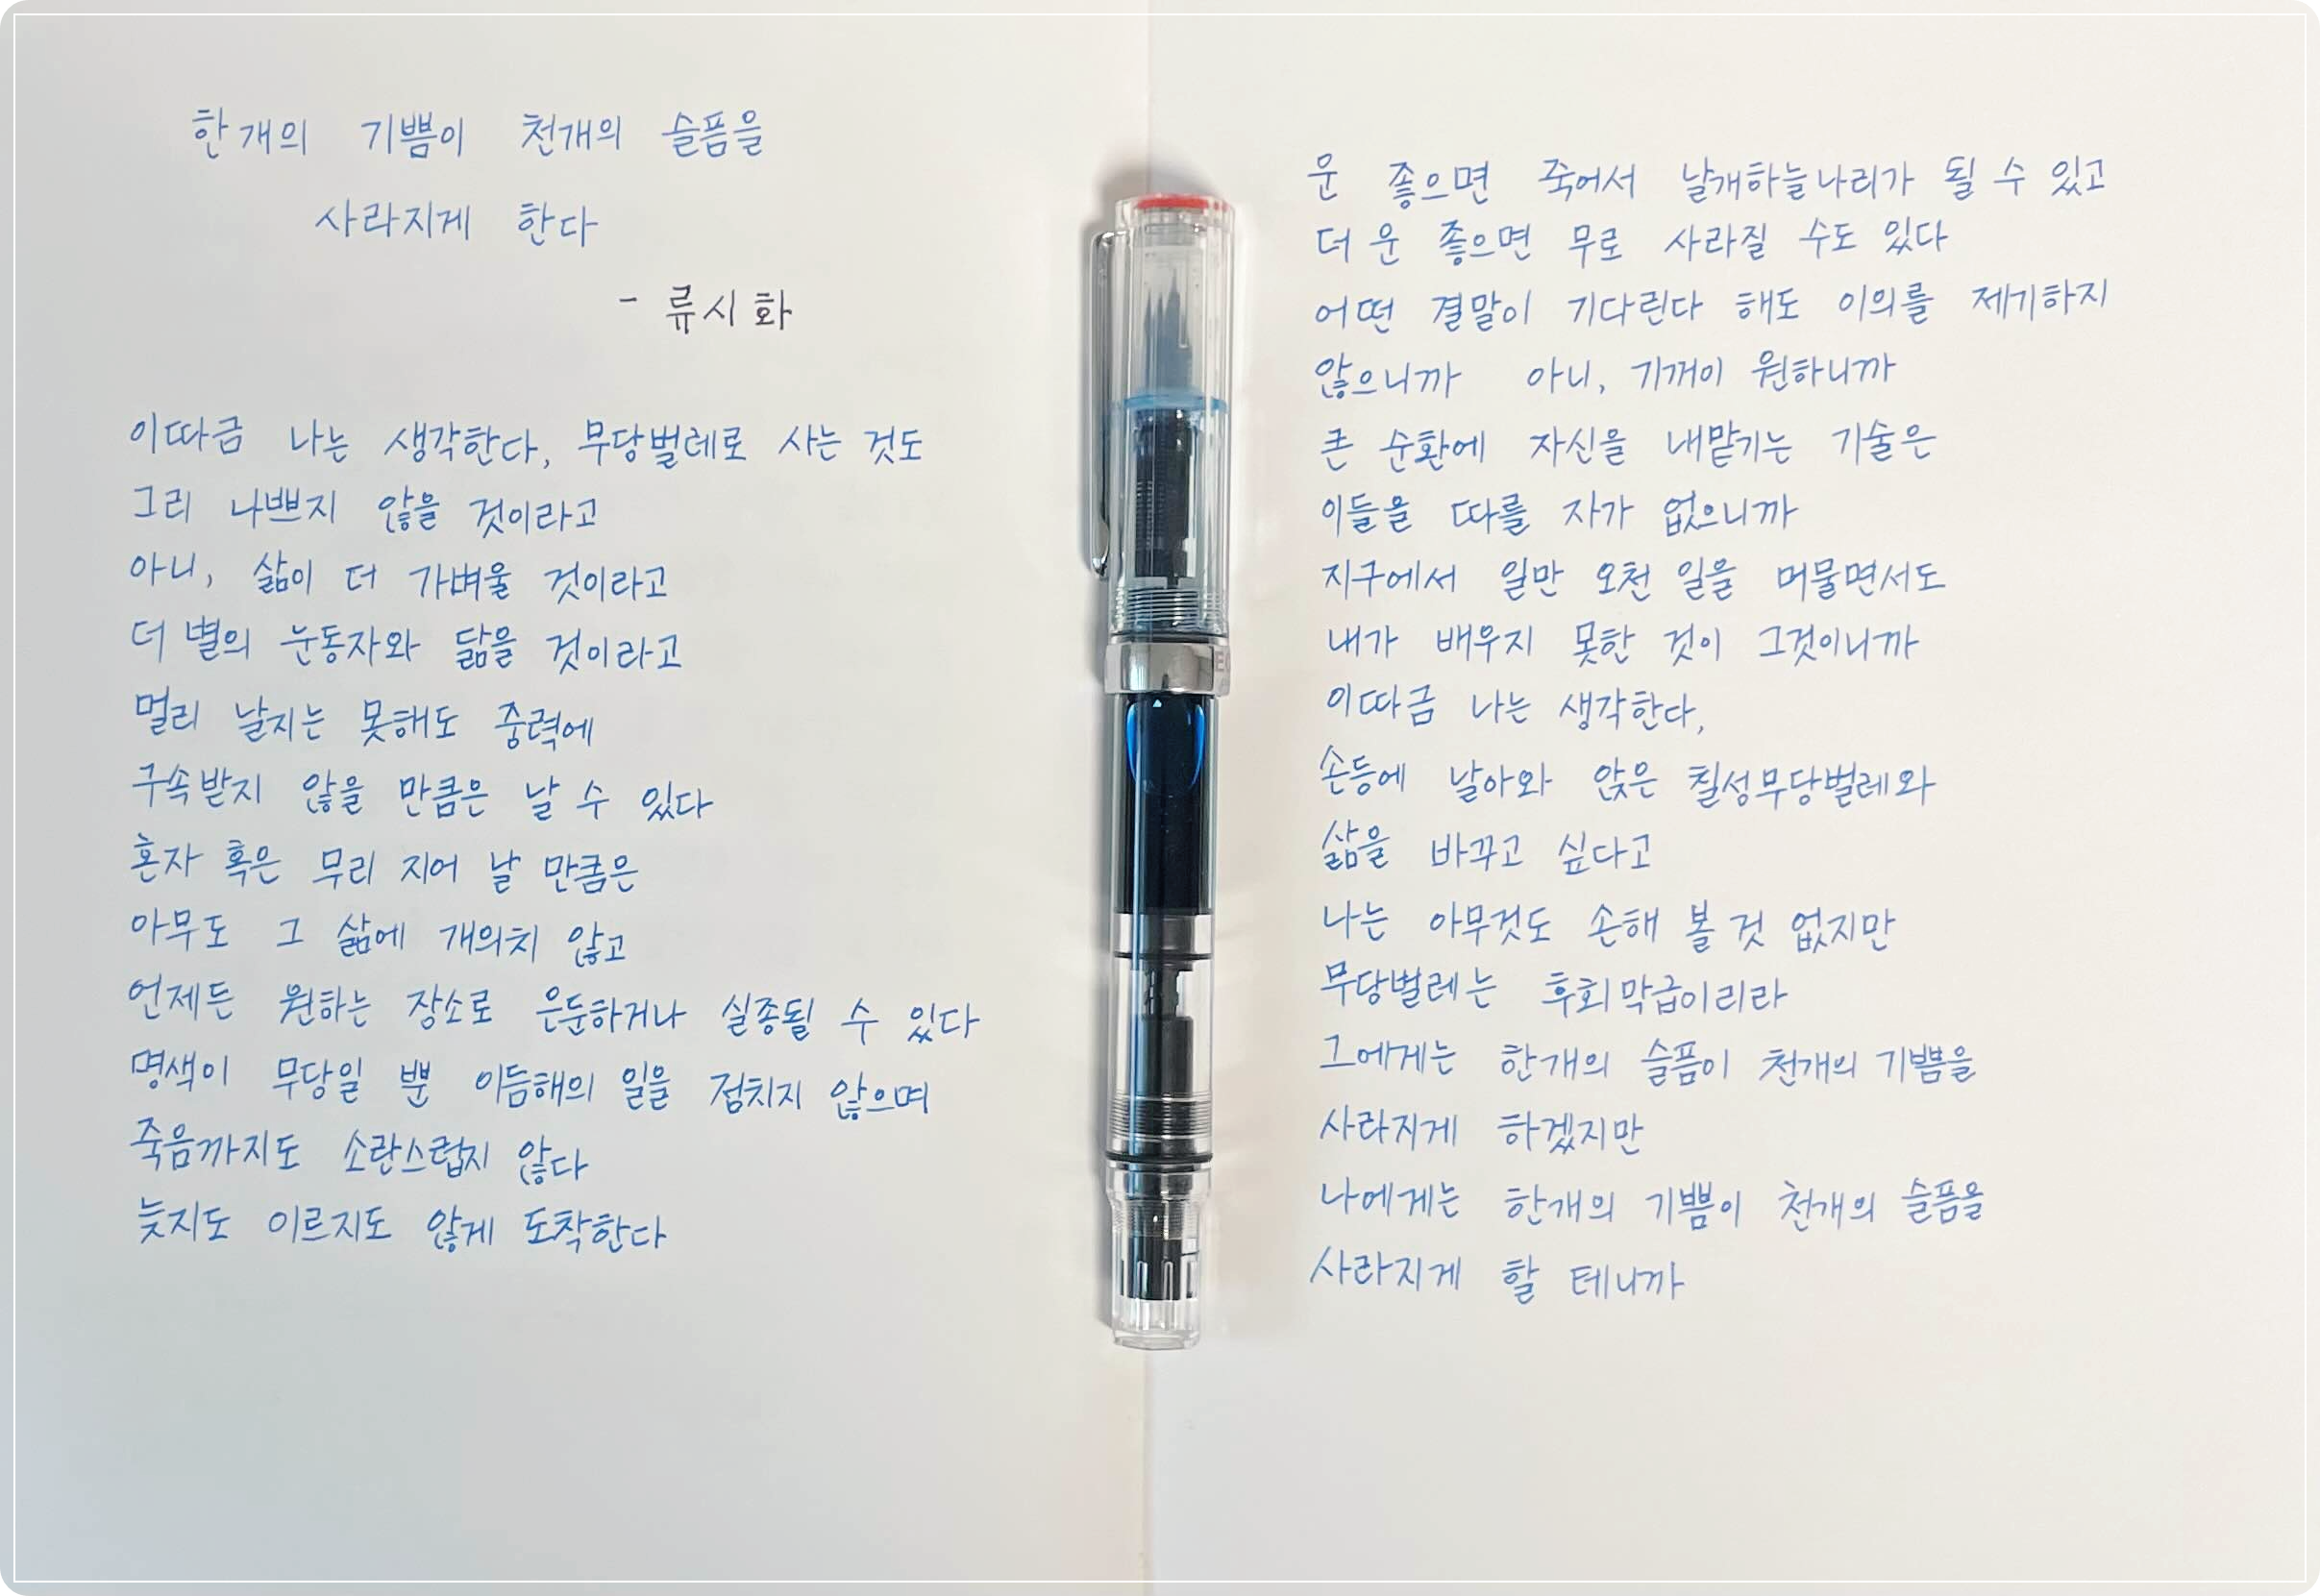 한개의 기쁨이 천개의 슬픔을
사라지게 한다
- 류시화
이따금 나는 생각한다, 무당벌레로 사는 것도
그리 나쁘지 않을 것이라고
아니, 삶이 더 가벼울 것이라고
더 별의 눈동자와 닮을 것이라고
멀리 날지는 못해도 중력에
구속받지 않을 만큼은 날 수 있다
혼자 혹은 무리 지어 날 만큼은
아무도 그 삶에 개의치 않고
언제든 원하는 장소로 은둔하거나 실종될 수 있다
명색이 무당일 뿐 이듬해의 일을 점치지 않으며
죽음까지도 소란스럽지 않다
늦지도 이르지도 않게 도착한다
운 좋으면 죽어서 날개하늘나리가 될 수 있고
더 운 좋으면 무로 사라질 수도 있다
어떤 결말이 기다린다 해도 이의를 제기하지
않으니까 아니, 기꺼이 원하니까
큰 순환에 자신을 내맡기는 기술은
이들을 따를 자가 없으니까
지구에서 일만 오천 일을 머물면서도
내가 배우지 못한 것이 그것이니까
이따금 나는 생각한다,
손등에 날아와 앉은 칠성무당벌레와
삶을 바꾸고 싶다고
나는 아무것도 손해 볼 것 없지만
무당벌레는 후회막급이리라
그에게는 한개의 슬픔이 천개의 기쁨을
사라지게 하겠지만
나에게는 한개의 기쁨이 천개의 슬픔을
사라지게 할 테니까